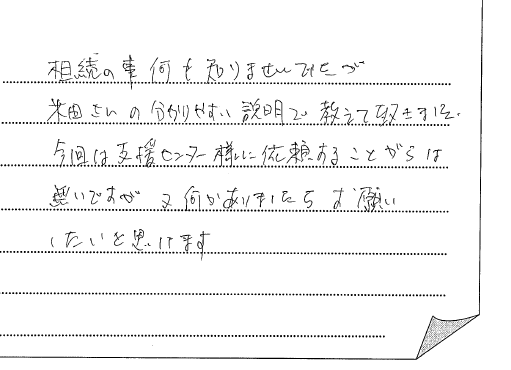 相続の事何も知りませんでしたが
米田さんの分かりやすい説明で教えて頂きました。
今回は支援センター様にに依頼することがらは
悪いですが 又何かありましたらお願い
したいと思います